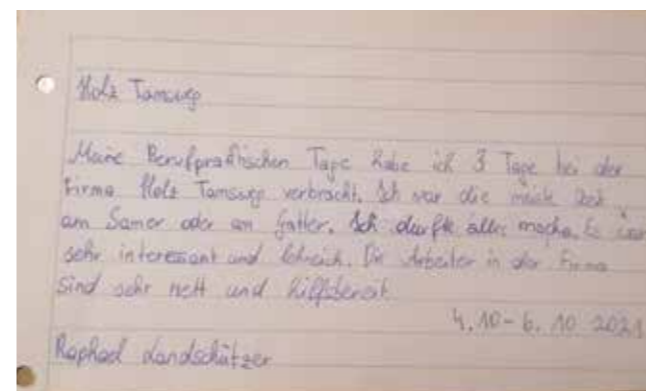 Holz Tamsweg
Meine Berufpraktischen Tage habe ich 3 Tage bei der
Firma Holz Tamsweg verbracht. Ich war die meiste Zeit
am Samer oder am Gatter. Ich durfte alles mache. Es war
sehr interessant und lehreich. Die Arbeiter in der Firma
sind sehr nett und hilfsbereit
4.10-6.10 2021
Raphael Landschützer